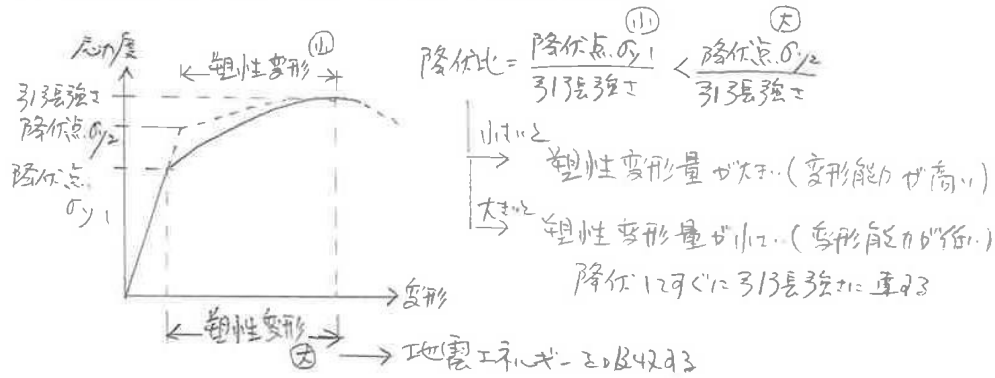 応力度
小
←塑性変形→
引張強さ
降伏点σy2
降伏点
σy1
変形
←塑性変形→
大
→ 地震エネルギーを吸収する
小 大
降伏比 = 降伏点σy1 / 引張強さ < 降伏点σy2 / 引張強さ
小さいと
→ 塑性変形量が大きい(変形能力が高い)
大きいと
→ 塑性変形量が小さい(変形能力が低い)
降伏してすぐに引張強さに達する